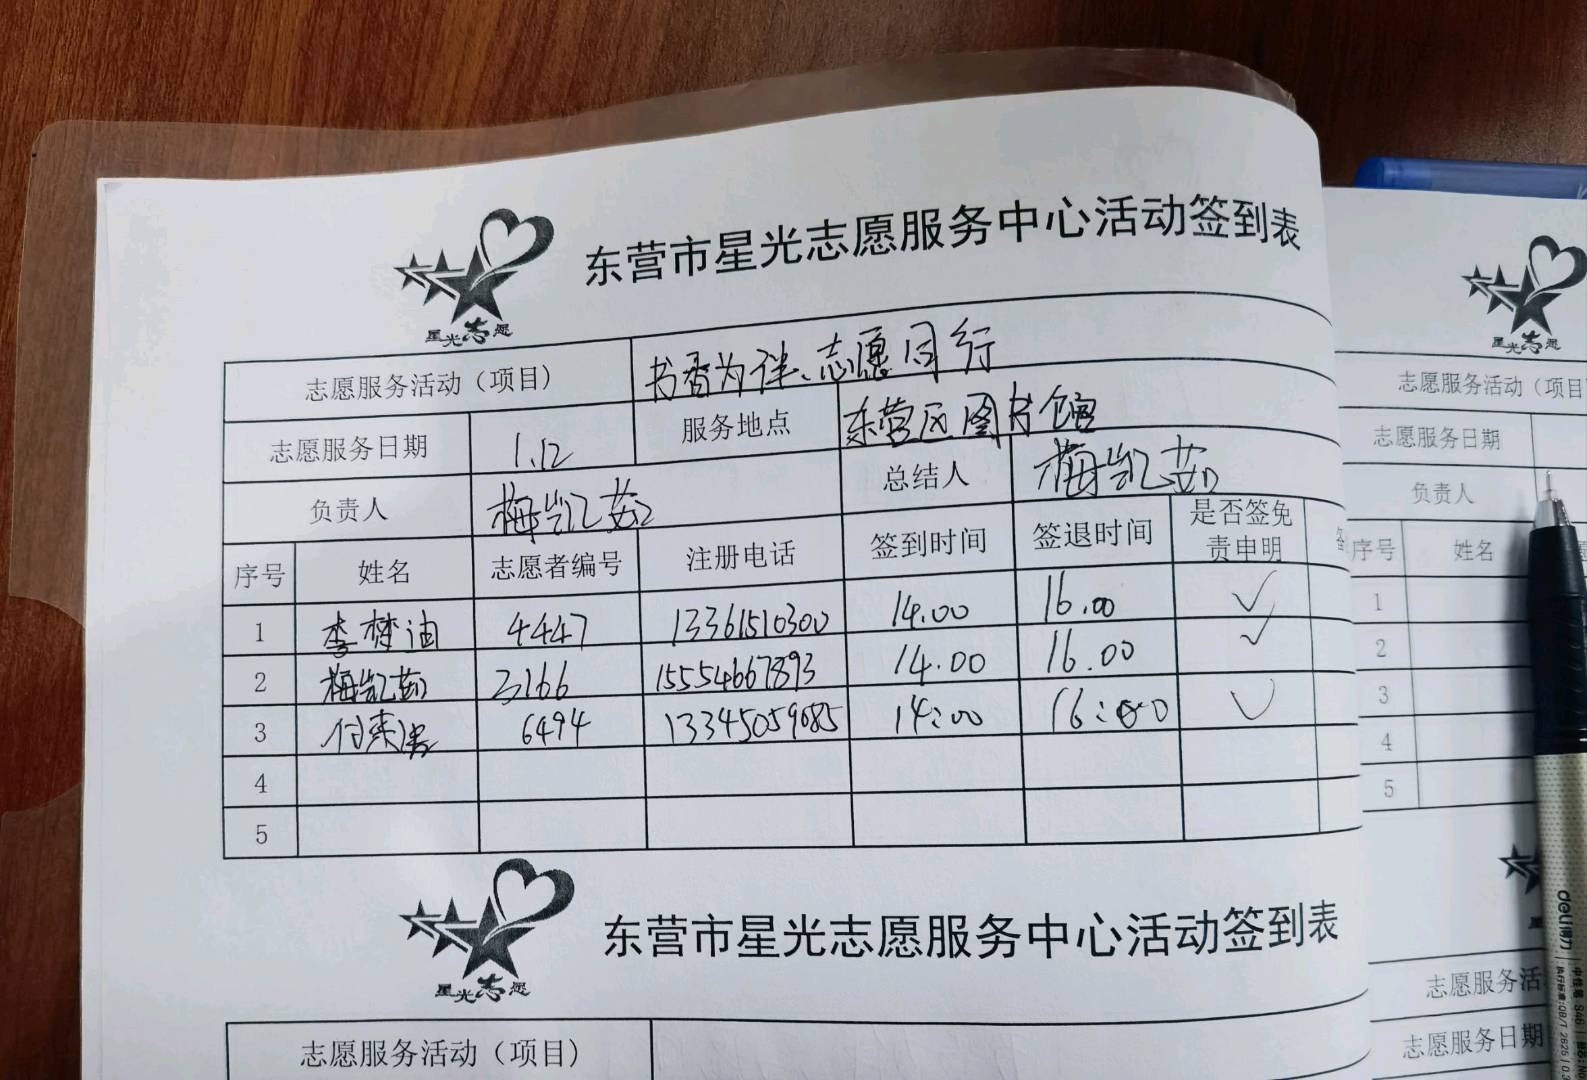 东营市星光志愿服务中心活动签到表
星光志愿
志愿服务活动（项目） 书香为伴、志愿同行
志愿服务日期 1.12 服务地点 东营区图书馆
负责人 梅凯茹 总结人 梅凯茹
序号 姓名 志愿者编号 注册电话 签到时间 签退时间 是否签免责申明
1 李梦迪 4447 13361510300 14.00 16.00 ✓
2 梅凯茹 3166 15554667893 14.00 16.00 ✓
3 6494 13345059685 14:00 16:00 ✓
4
5
东营市星光志愿服务中心活动签到表
星光志愿
志愿服务活动（项目）
星光志愿
志愿服务活动（项目
志愿服务日期
负责人
序号 姓名
1
2
3
4
5
志愿服务活
志愿服务日期
deli得力